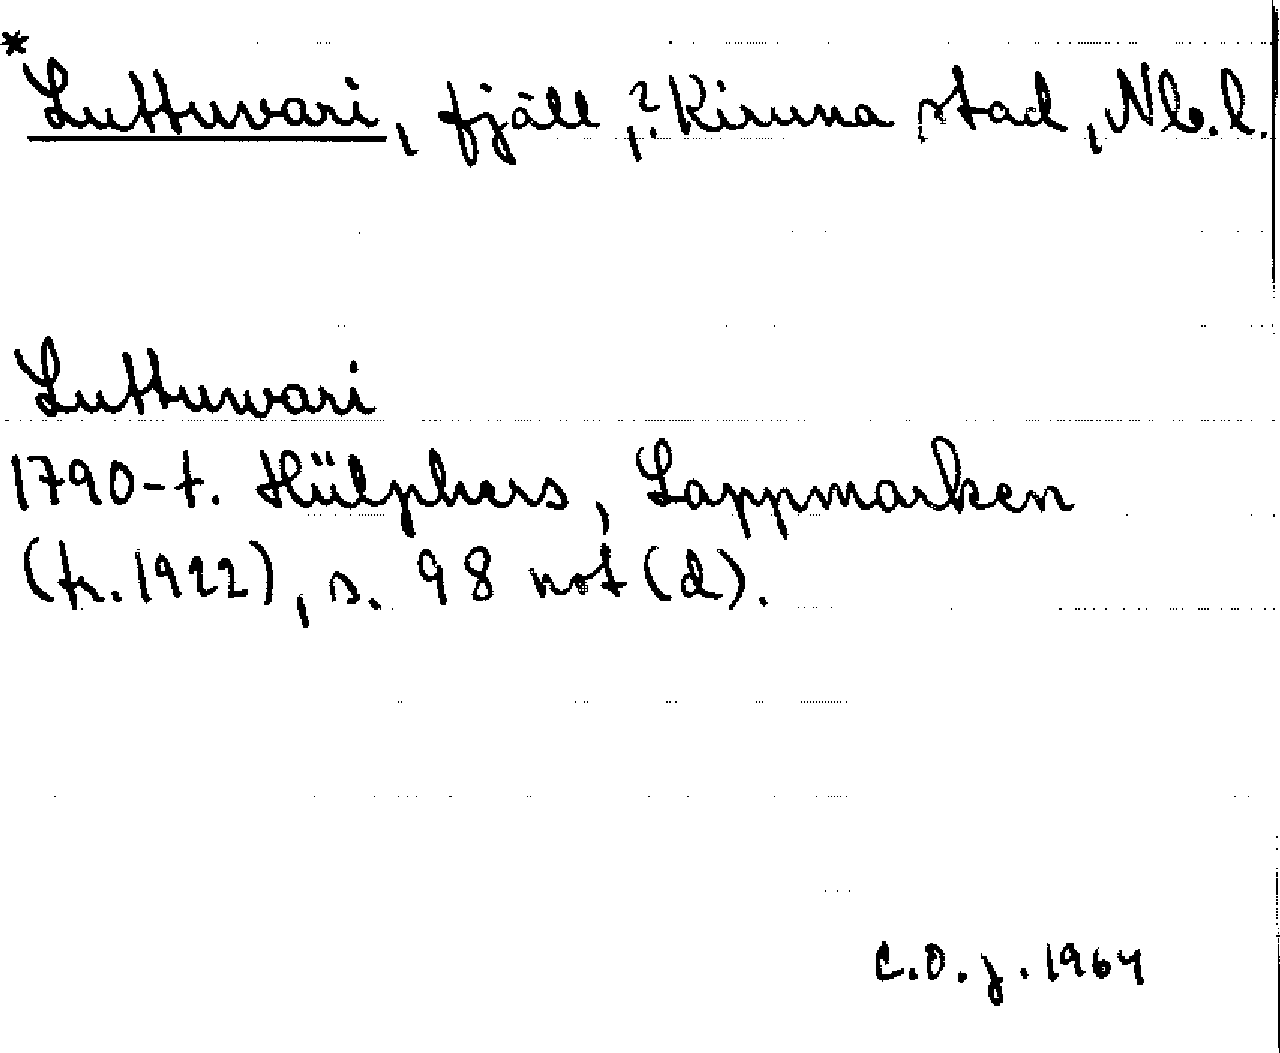 *Luttuvari, fjäll, ? Kiruna stad, Nb.l.
Luttuwari
1790-t. Hülphers, Lappmarken
(tr. 1922), s. 98 not (d).
C.O.J. 1964